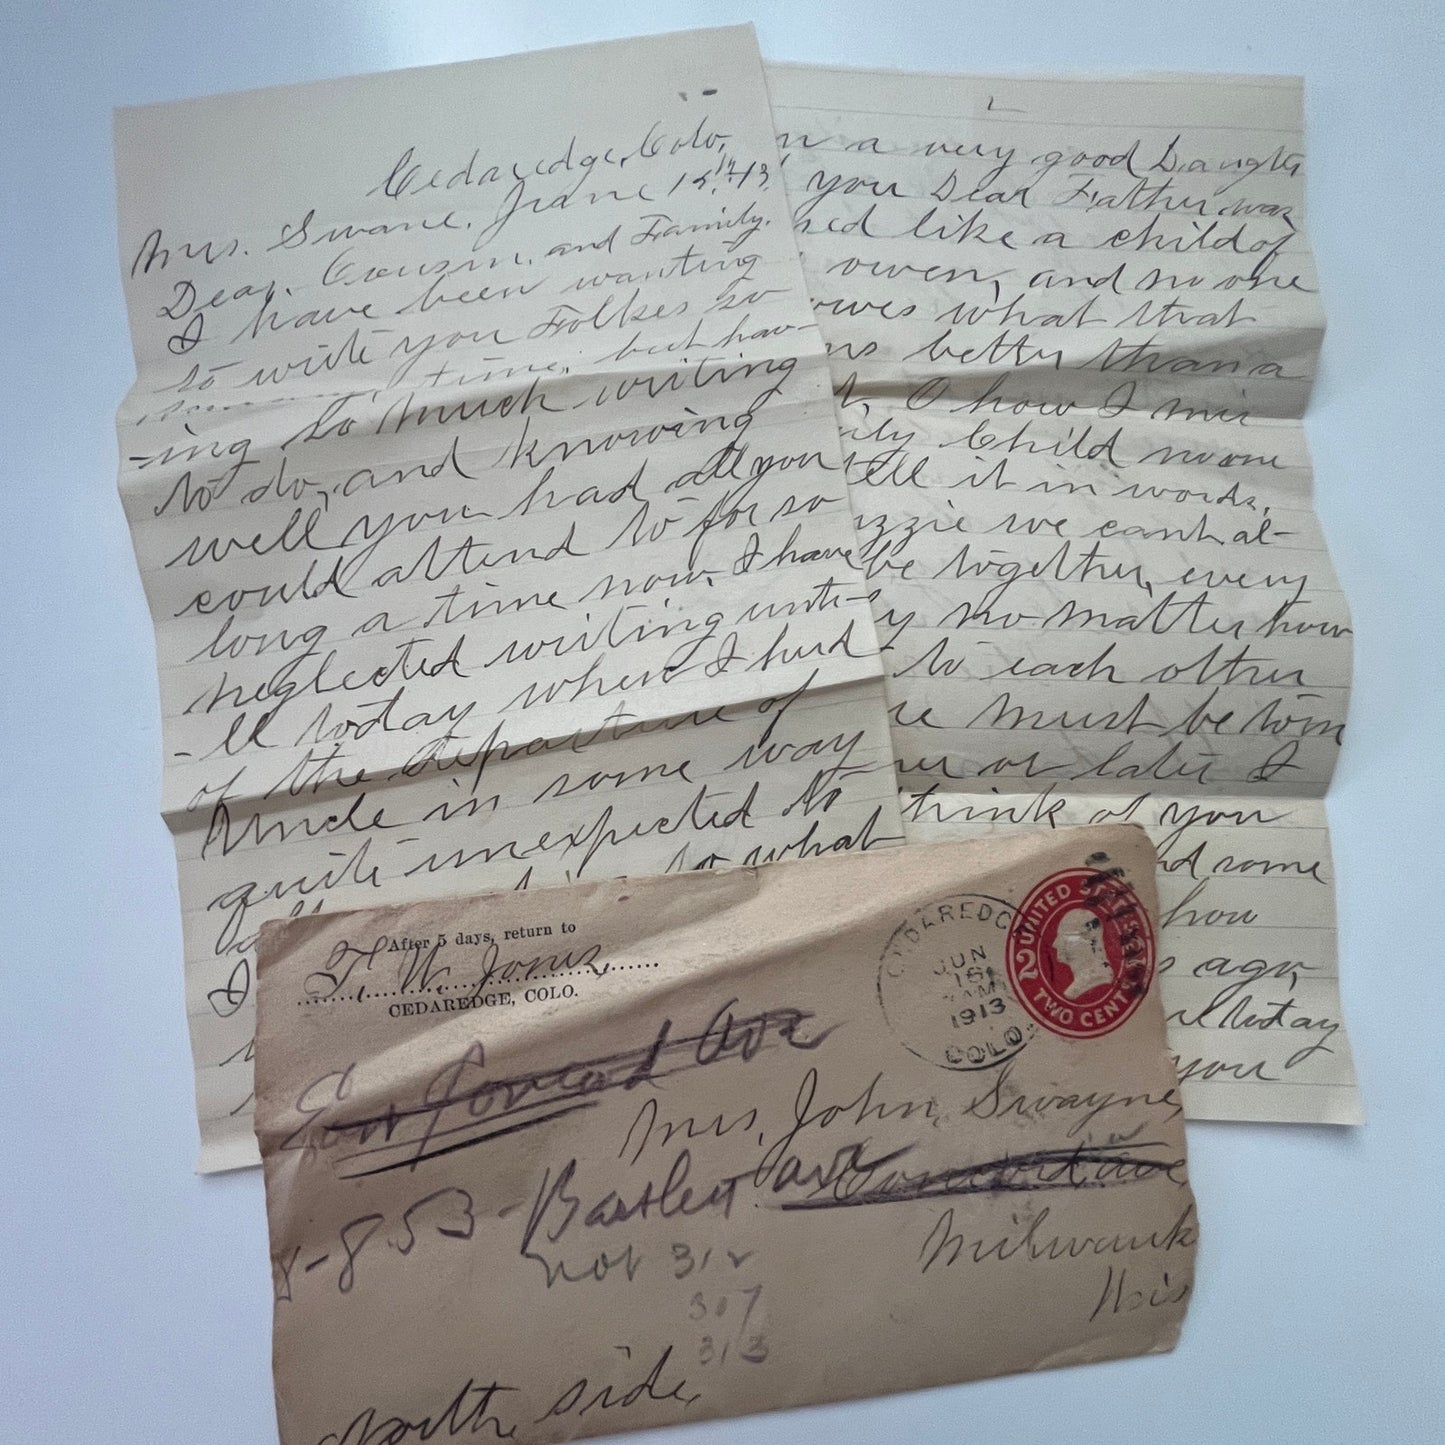 Cedaredge, Colo,
Mrs. Swane. June 15th 13.
Dear, Cousin, and Family.
I have been wanting
to write you Folkes so
time, but hav-
-ing so much writing
to do, and knowing
well you had all you
could attend to for so
long a time now, I have
neglected writing unti-
-ll today when I hurd
of the departure of
Uncle in some way
quite unexpected to
to what
I
a very good Daughter
you Dear Father, was
like a child of
owen, and no one
what that
better than a
O how I miss
Child no one
tell it in words,
we cant al-
be together, every
no matter how
to each other
must be torn
or later I
think of you
some
how
ago,
today
you
After 5 days, return to
T. W. Jones,
CEDAREDGE, COLO.
CEDAREDGE
JUN
16
AM
1913
COLO.
UNITED STATES
2 2
TWO CENTS
Concord Ave
Mrs, John, Swayne,
853 - Bartlett ave Concord, ave,
not 312
307
313
Milwauk
Wis
North, side,